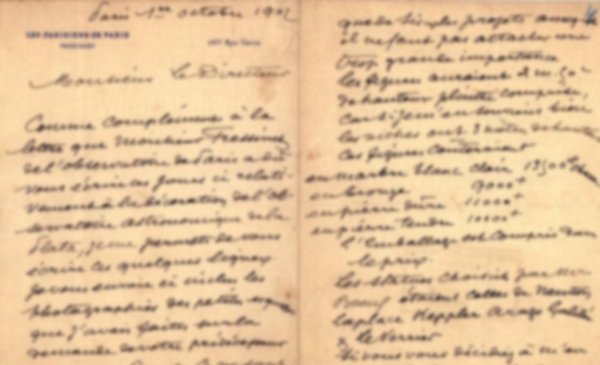 Paris 1er octobre 190
LES PARISIENS DE PARIS
Monsieur Le Directeur
Comme complément à la
lettre que Monsieur
de l'observatoire de Paris a dû
vous écrire ces jours ci relati-
vement à la décoration de l'ob-
servatoire astronomique de la
Plata, je me permets de vous
écrire ces quelques lignes
Je vous envoie ci inclus les
photographies des petites
que j'avais faites sur la
demande de votre prédécesseur
que de simples projets
il ne faut pas attacher une
trop grande importance
les figures auraient 2 m. 50
de hauteur plinthe comprise,
car si j'ai bien
les niches ont 3 mètres de hauteur
Ces figures couteraient
en marbre blanc clair 13500
en bronze 9000
en pierre dure 11000
en pierre tendre 10000
l'Emballage est compris dans
le prix.
Les statues choisies par Mr
étaient celles de Newton
Laplace Keppler Arago Galilée
Le Verrier
Si vous vous décidiez à m'en